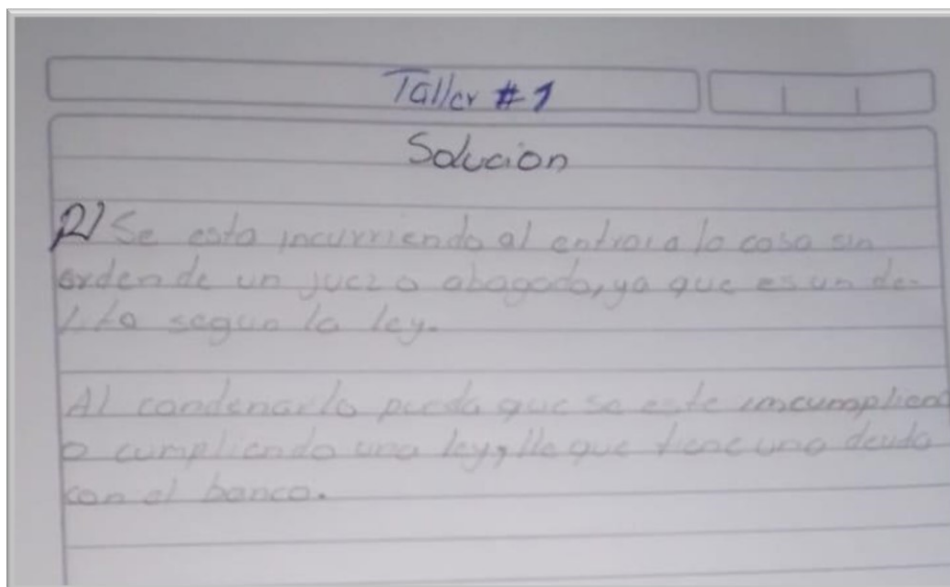 Taller # 1
Solucion
R/ Se esta incurriendo al entrar a la casa sin
orden de un juez o abogado, ya que es un de-
lito segun la ley.
Al condenarlo pueda que se este incumpliend
o cumpliendo una ley, que tiene una deuda
con el banco.